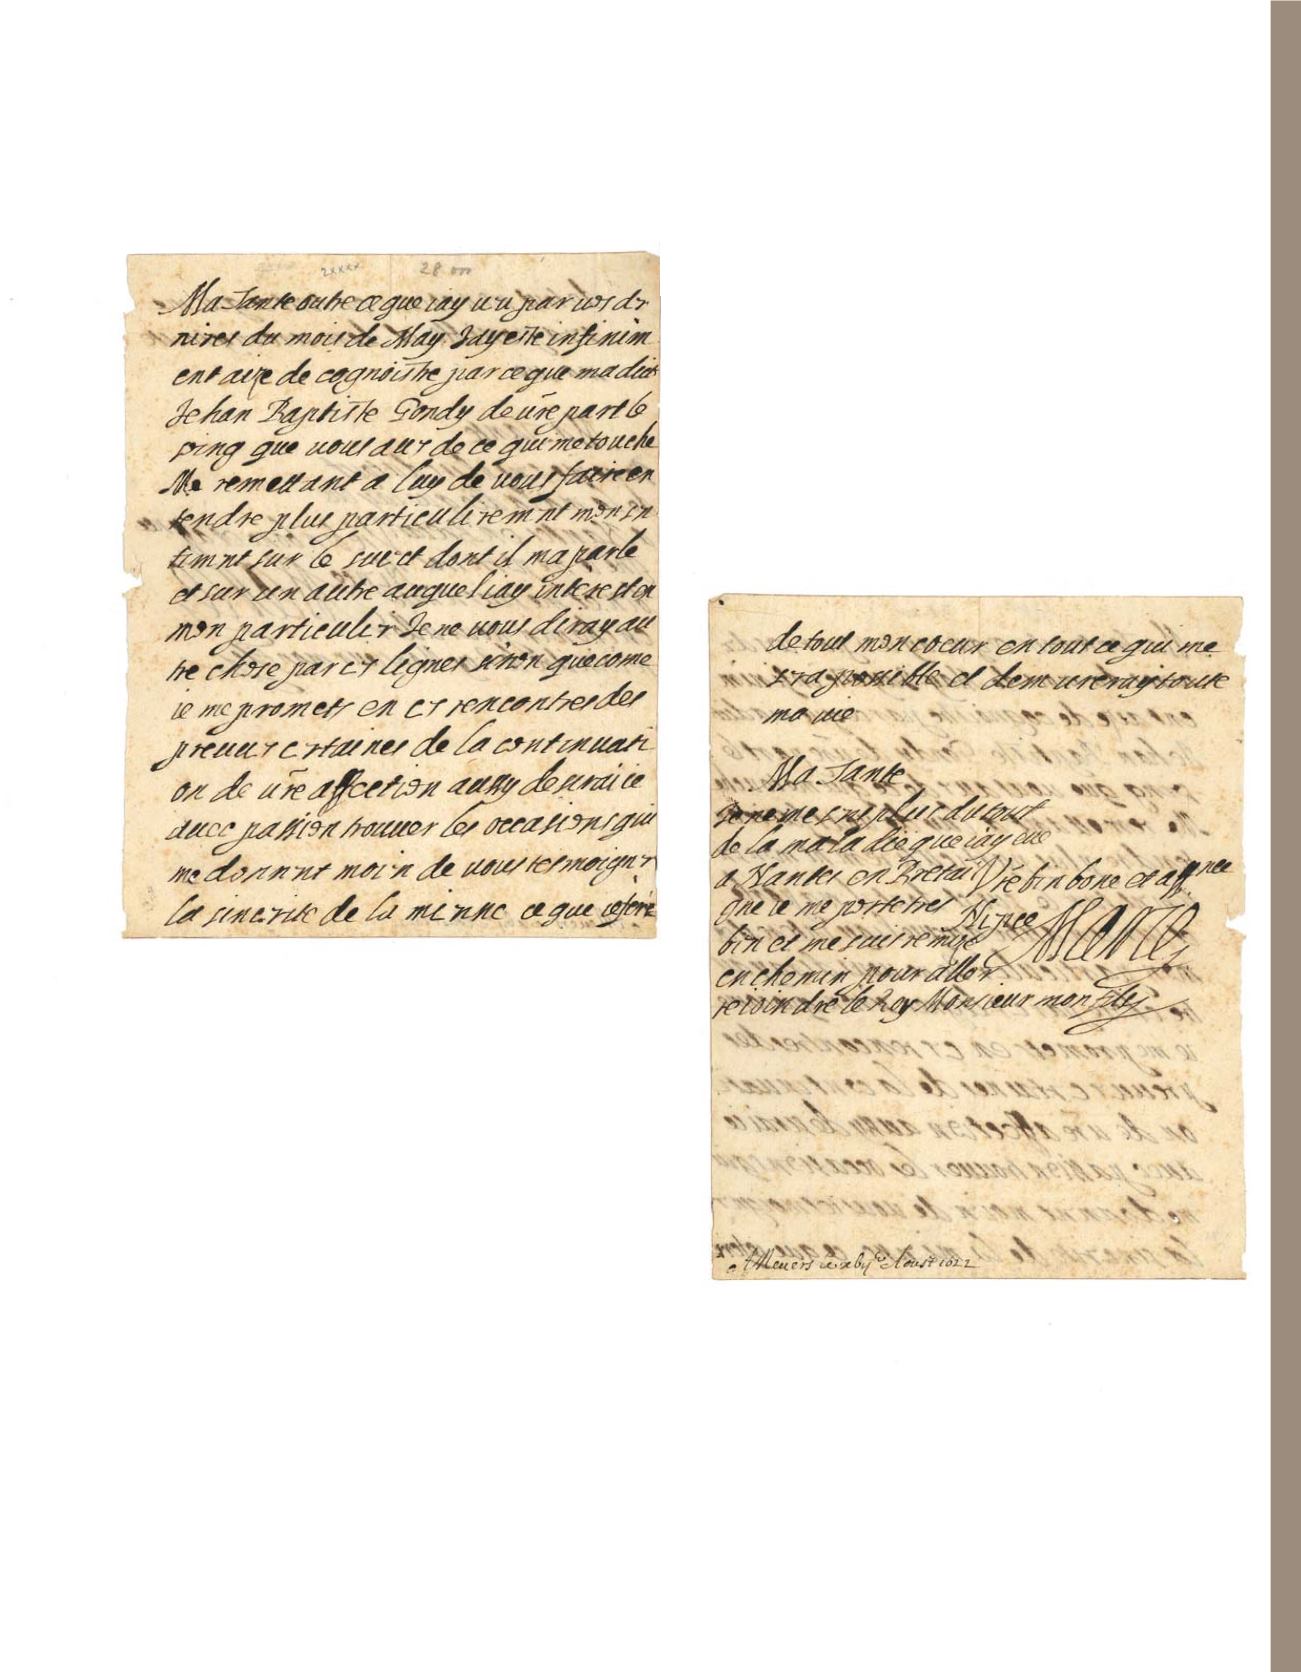 2xxxx 28
Ma Tante outre ce que iay veu par vos der
nires du mois de May Jay este infinim
ent aize de cognoistre par ce que ma dict
Jehan Baptiste Gondy de vre part le
soing que vous aues de ce qui me touche
Me remettant a luy de vous faire en
tendre plus particulirement mon sen
timent sur le suiect dont il ma parle
et sur un autre auquel iay interest en
mon particulier Je ne vous diray au
tre chose par ces lignes sinon que come
ie me promets en ces rencontres des
preuues certaines de la continuati
on de vre affection aussy deuraie
auec passion trouuer les occasions qui
me donnent moien de vous tesmoigner
la sincerite de la mienne ce que ie feré
de tout mon coeur en tout ce qui me
sera possible et demeureray toute
ma vie
Ma Tante
Je ne me sens plus du tout
de la maladie que iay eue
a Nantes en Bretai
que ie me porte tres
bien et me suis remise
en chemin pour aller
reioindre le Roy Monsieur mon fils
Vre bien bone et affnee
Niepce Marie
A Neuers le xbje Aoust 1622